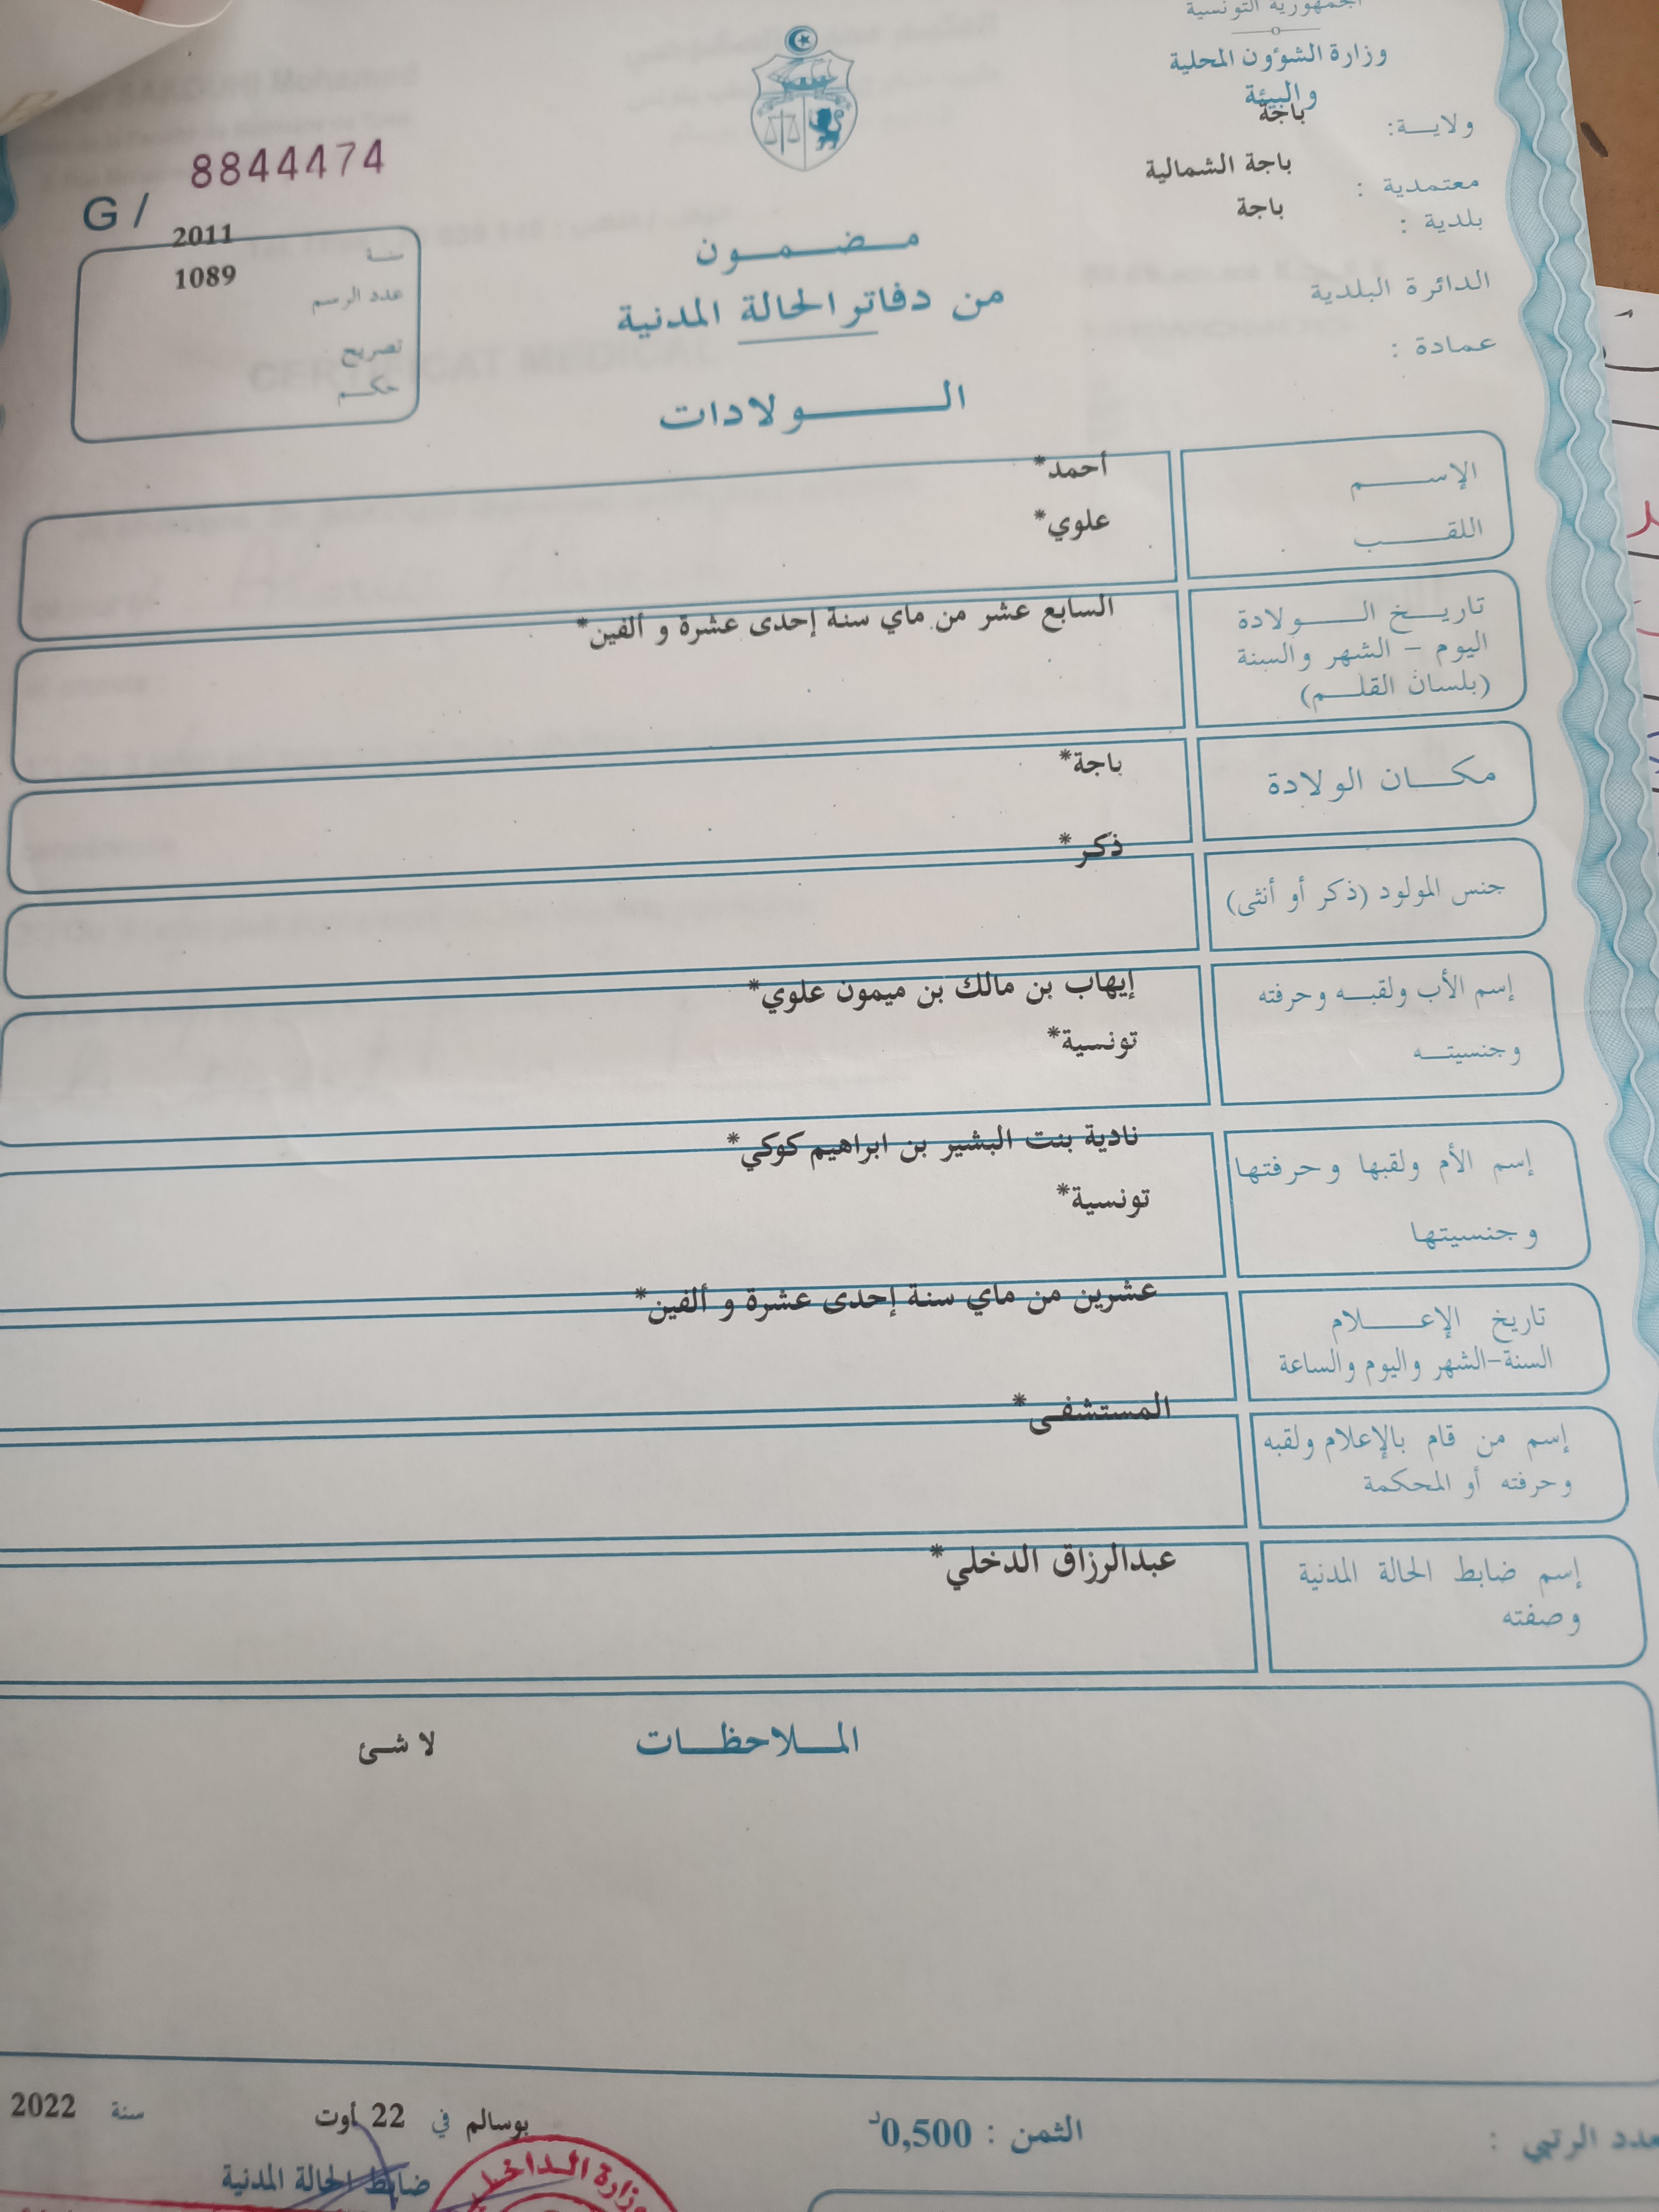 الجمهورية التونسية
وزارة الشؤون المحلية
والبيئة
ولايـــة: باجة
معتمدية : باجة الشمالية
بلدية : باجة
الدائرة البلدية
عمادة :
G / 8844474
سنة 2011
عدد الرسم 1089
تصريح
حكم
مضمون
من دفاتر الحالة المدنية
الولادات
الإسم أحمد*
اللقب علوي*
تاريخ الولادة السابع عشر من ماي سنة إحدى عشرة و ألفين*
اليوم – الشهر والسنة
(بلسان القلم)
مكان الولادة باجة*
جنس المولود (ذكر أو أنثى) ذكر*
إسم الأب ولقبه وحرفته إيهاب بن مالك بن ميمون علوي*
وجنسيته تونسية*
إسم الأم ولقبها وحرفتها نادية بنت البشير بن ابراهيم كوكي*
وجنسيتها تونسية*
تاريخ الإعلام عشرين من ماي سنة إحدى عشرة و ألفين*
السنة-الشهر واليوم والساعة
إسم من قام بالإعلام ولقبه المستشفى*
وحرفته أو المحكمة
إسم ضابط الحالة المدنية عبدالرزاق الدخلي*
وصفته
الملاحظات لا شئ
عدد الرتبي :
الثمن : 0,500د
بوسالم في 22 أوت سنة 2022
ضابط الحالة المدنية
وزارة الداخلية
CERTIFICAT MEDICAL